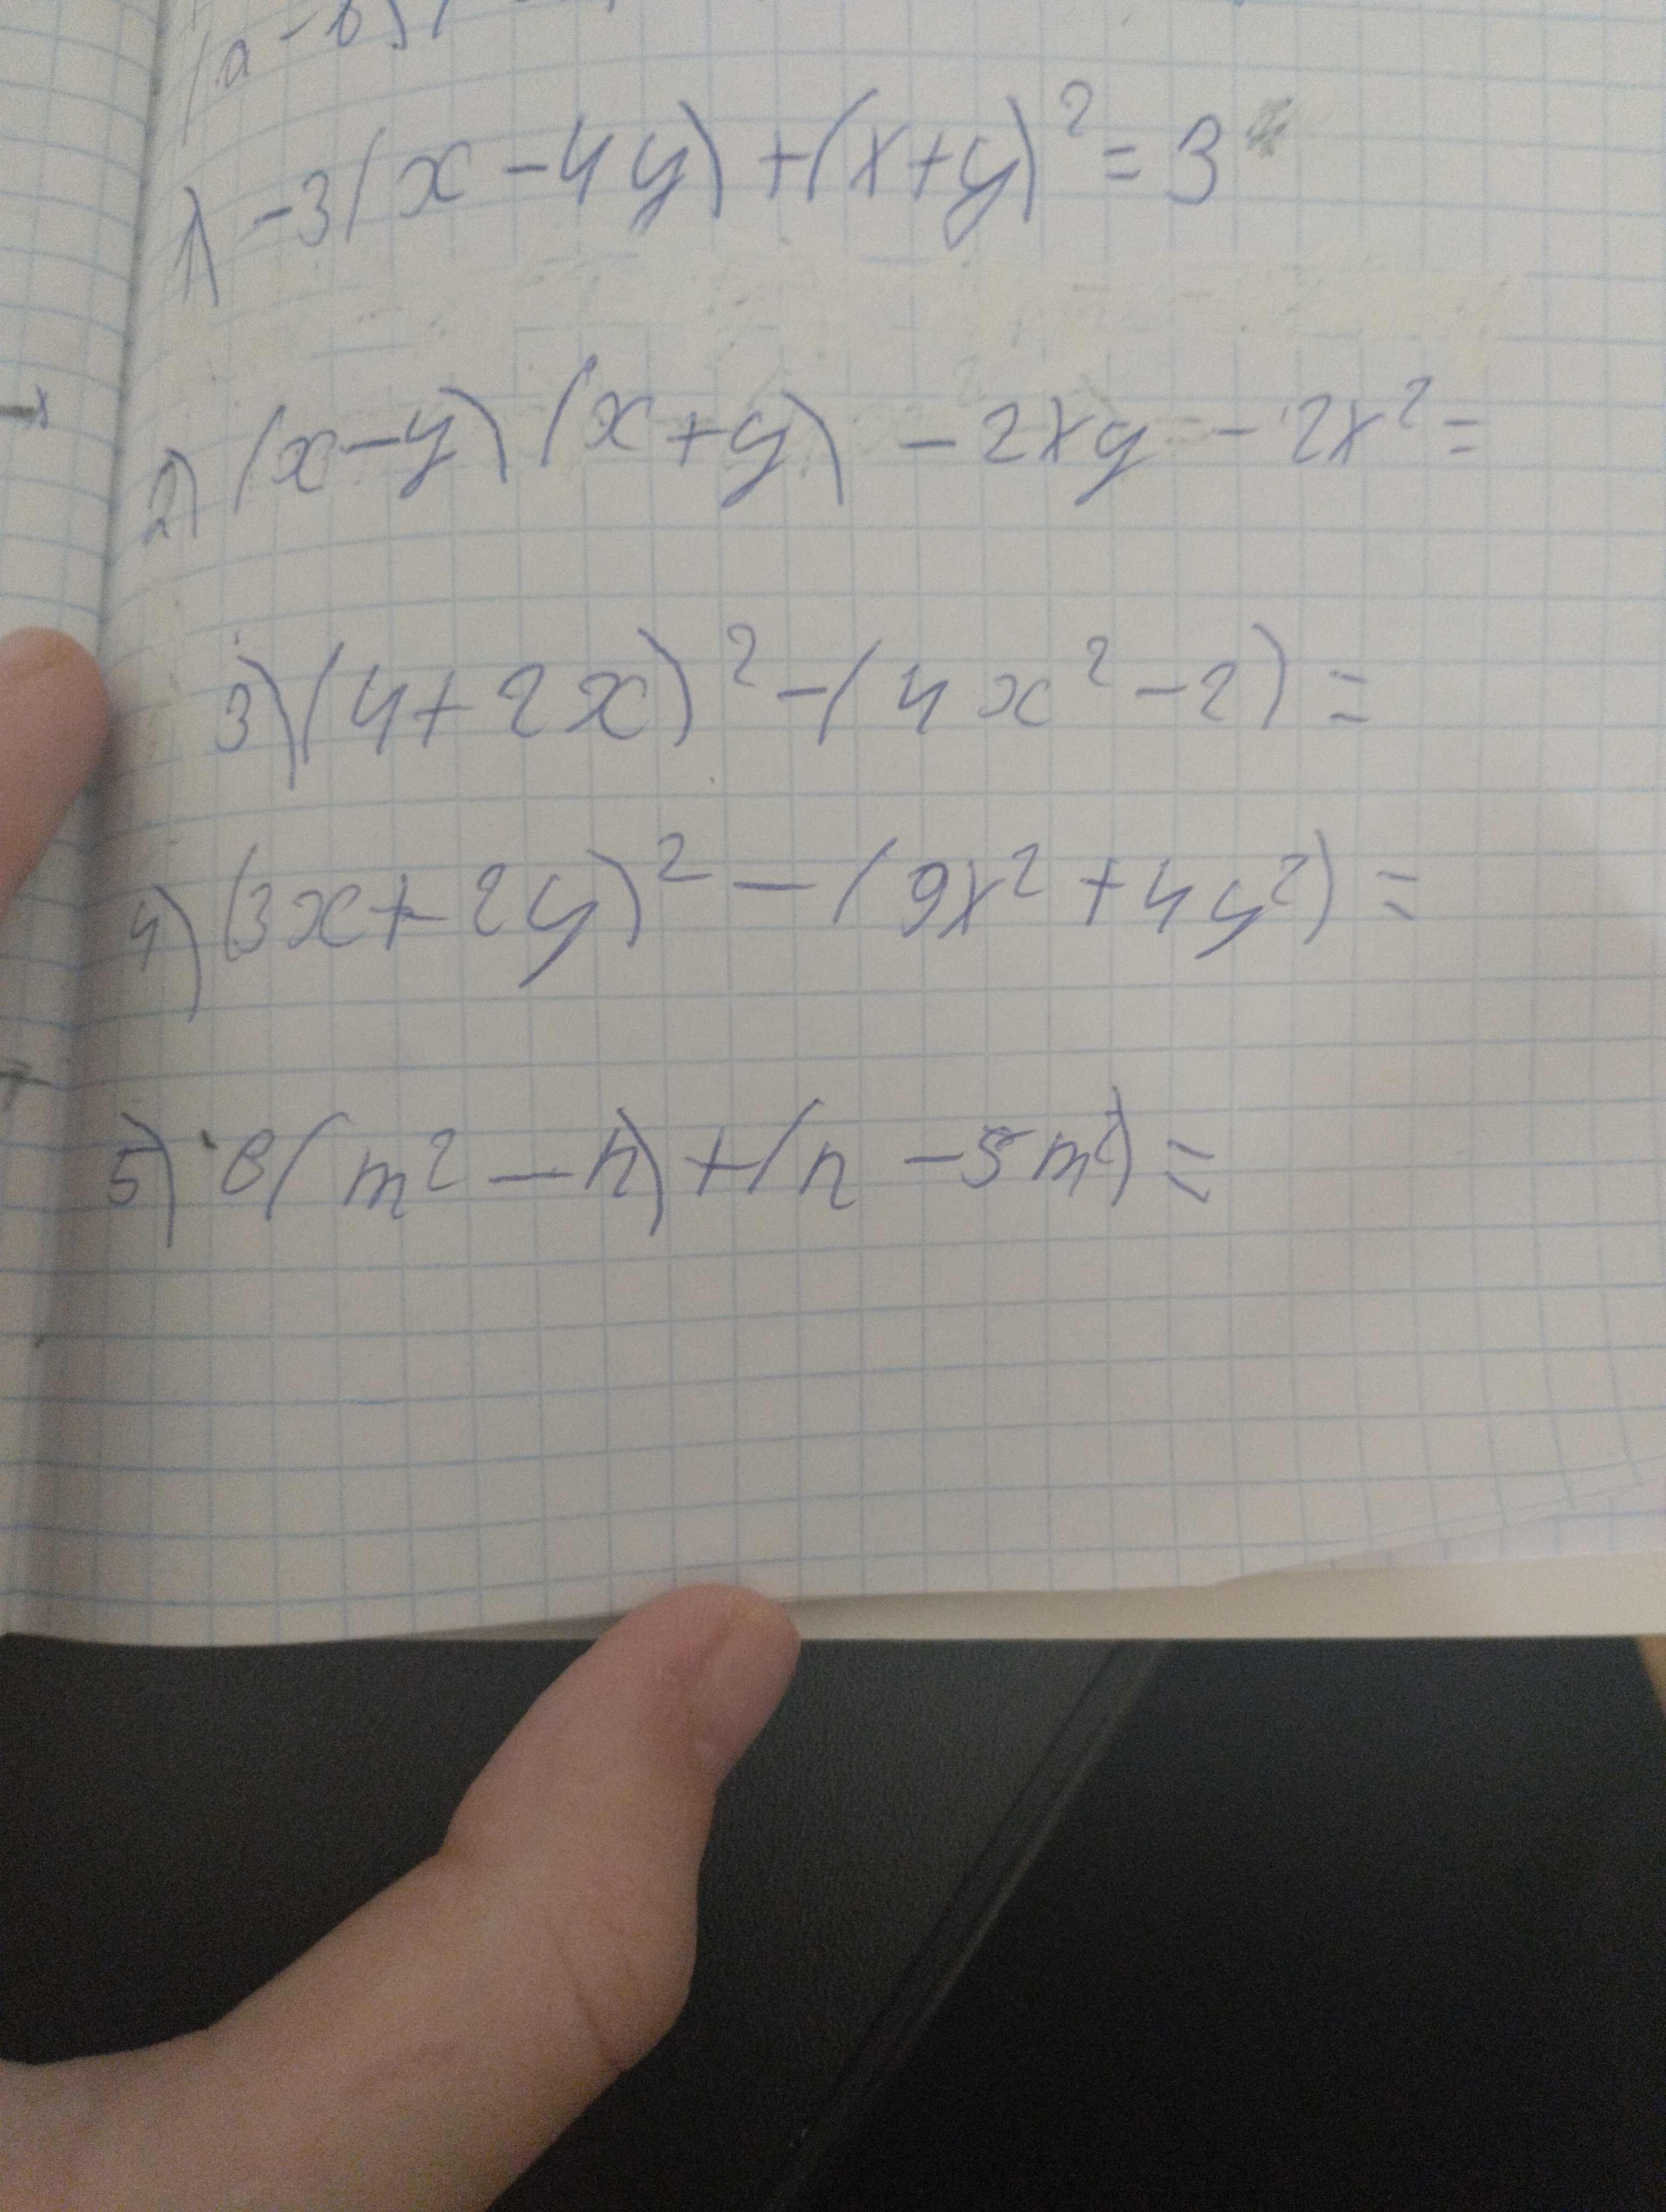 (a-b)
1) -3(x-4y)+(x+y)²=3
2) (x-y)(x+y)-2xy-2x²=
3) (4+2x)²-(4x²-2)=
4) (3x+2y)²-(9x²+4y²)=
5) 8(m²-n)+(n-5m²)=